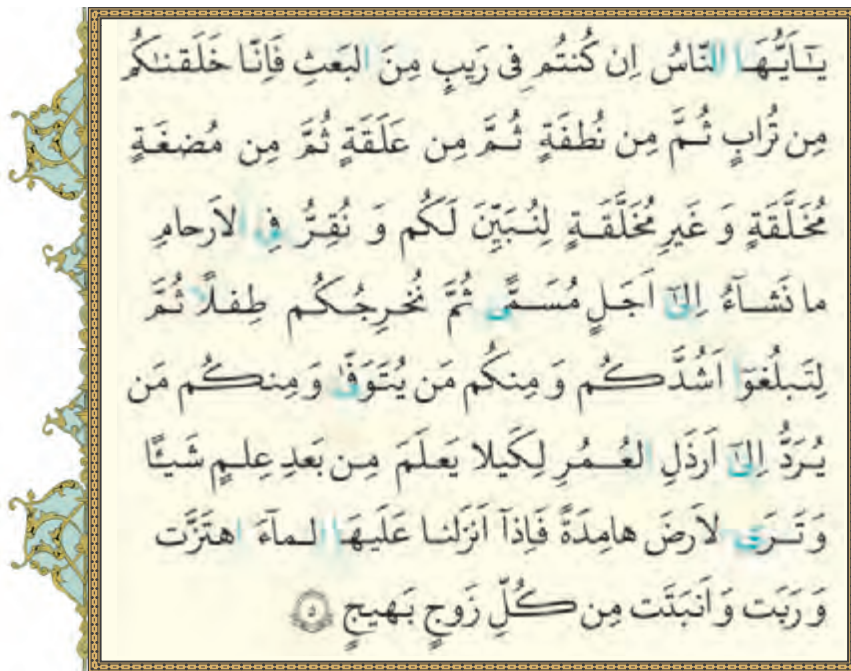 يـٰٓاَيُّهَا النّاسُ اِن كُنتُم فى رَيبٍ مِنَ البَعثِ فَاِنّا خَلَقنـٰكُم
مِن تُرابٍ ثُمَّ مِن نُطفَةٍ ثُمَّ مِن عَلَقَةٍ ثُمَّ مِن مُضغَةٍ
مُخَلَّقَةٍ وَ غَيرِ مُخَلَّقَةٍ لِنُبَيِّنَ لَكُم وَ نُقِرُّ فِى الاَرحامِ
ما نَشآءُ اِلىٰٓ اَجَلٍ مُسَمًّى ثُمَّ نُخرِجُكُم طِفلًا ثُمَّ
لِتَبلُغوٓا اَشُدَّكُم وَ مِنكُم مَن يُتَوَفّىٰ وَ مِنكُم مَن
يُرَدُّ اِلىٰٓ اَرذَلِ العُمُرِ لِكَيلا يَعلَمَ مِن بَعدِ عِلمٍ شَيـًٔا
وَ تَرَى الاَرضَ هامِدَةً فَاِذآ اَنزَلنا عَلَيهَا المآءَ اهتَزَّت
وَ رَبَت وَ اَنبَتَت مِن كُلِّ زَوجٍ بَهيجٍ ۝٥